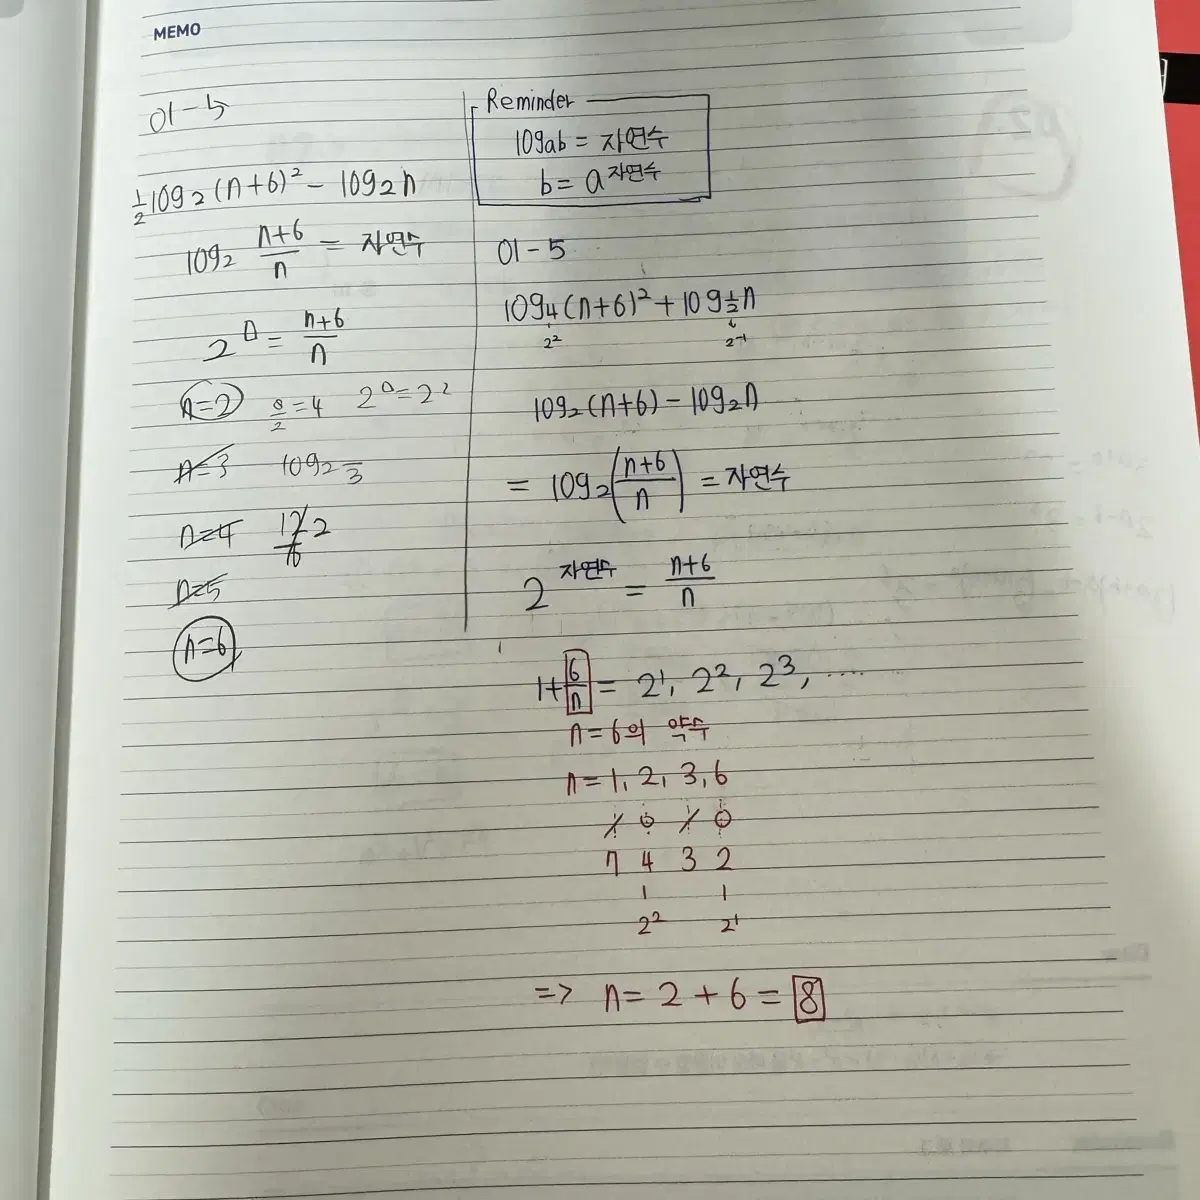 MEMO
01-5
½log₂(n+6)² - log₂n
log₂ (n+6)/n = 자연수
2^△ = (n+6)/n
n=2 8/2=4 2^△=2²
n=3 log₂ /3
n=4 12/6 2
n=5
n=6
Reminder
logab = 자연수
b = a^자연수
01-5
log₄(n+6)² + log½n
2² 2⁻¹
log₂(n+6) - log₂n
= log₂((n+6)/n) = 자연수
2^자연수 = (n+6)/n
1+6/n = 2¹, 2², 2³, ····
n=6의 약수
n=1, 2, 3, 6
7 4 3 2
2² 2¹
=> n= 2 + 6 = 8